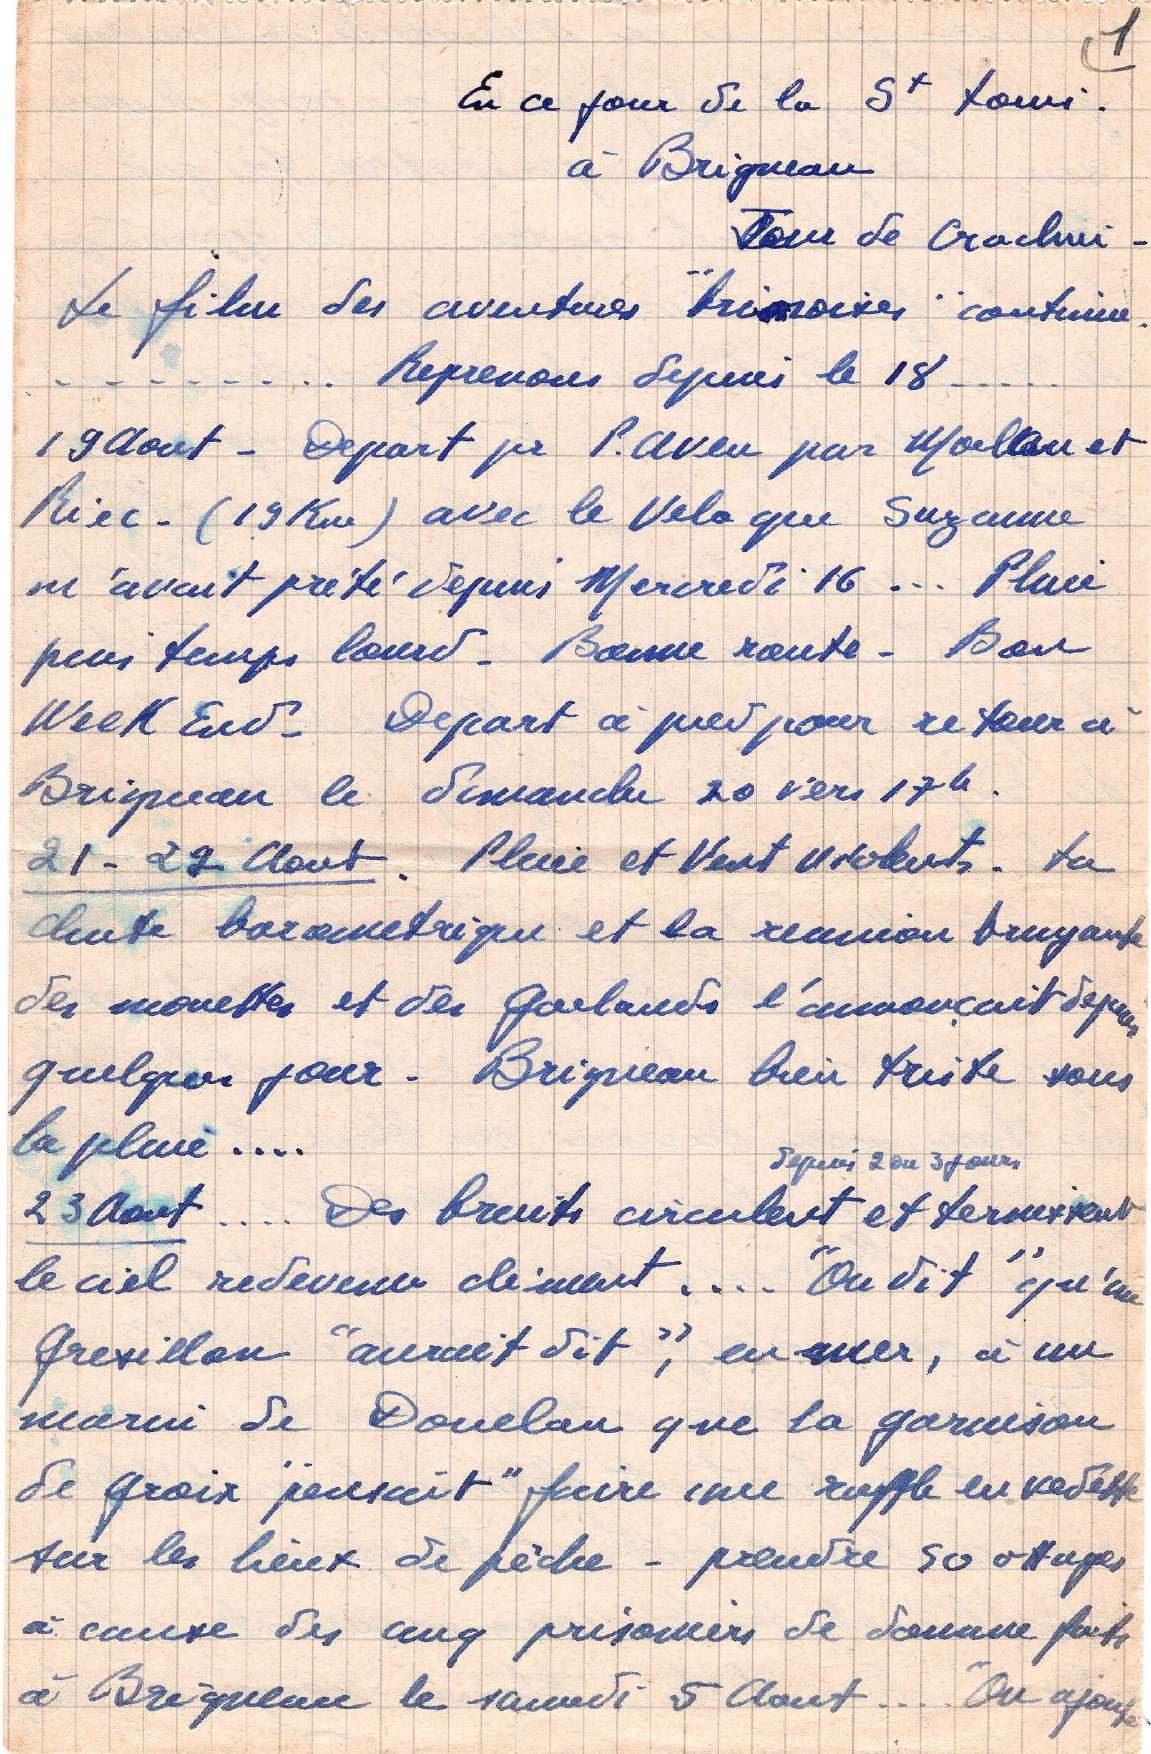 1
En ce jour de la St Louis.
à Brigneau
Jour de Crachin -
Le film des aventures "trimoises" continue.
- - - - - - - - - . . Reprenons depuis le 18 - - - - -
19 Aout - Depart pr P. Aven par Moëlan et
Riec - (19 Km) avec le Velo que Suzanne
m'avait prété depuis Mercredi 16 ... Pluie
puis temps lourd - Bonne route - Bon
Week End - Depart à pied pour retour à
Brigneau le dimanche 20 vers 17h.
21 - 22 Aout. Pluie et Vent violents. La
chute barometrique et la reunion bruyante
des mouettes et des Goelands l'annonçait depuis
quelques jour - Brigneau bien triste sous
la pluie ....
depuis 2 ou 3 jours
23 Aout .... Des bruits circulent et ternissent
le ciel redevenu clément .... "On dit" qu'un
Gresillon "aurait dit", en mer, à un
marin de Douelan que la garnison
de Groix "pensait" faire une raffle en vedette
sur les lieux de pêche - prendre 50 otages
à cause des cinq prisoniers de douane faits
à Brigneau le samedi 5 Aout .... "On ajoute